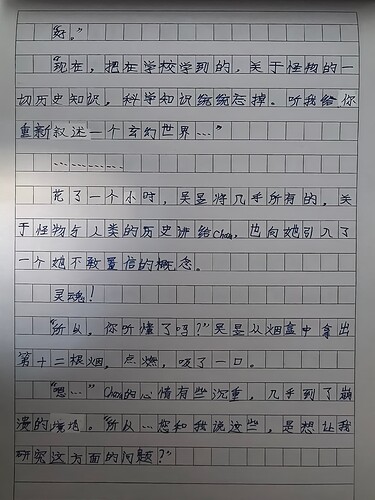 “好。”
“现在，把在学校学到的，关于怪物的一
切历史知识，科学知识统统忘掉。听我给你
重新叙述一个玄幻世界…”
…………
花了一个小时，吴昱将几乎所有的，关
于怪物与人类的历史讲给Chan，也向她引入了
一个她不敢置信的概念。
灵魂！
“所以，你听懂了吗？”吴昱从烟盒中拿出
第十二根烟，点燃，吸了一口。
“嗯…”Chan的心情有些沉重，几乎到了崩
溃的境地。“所以…您和我说这些，是想让我
研究这方面的问题？”